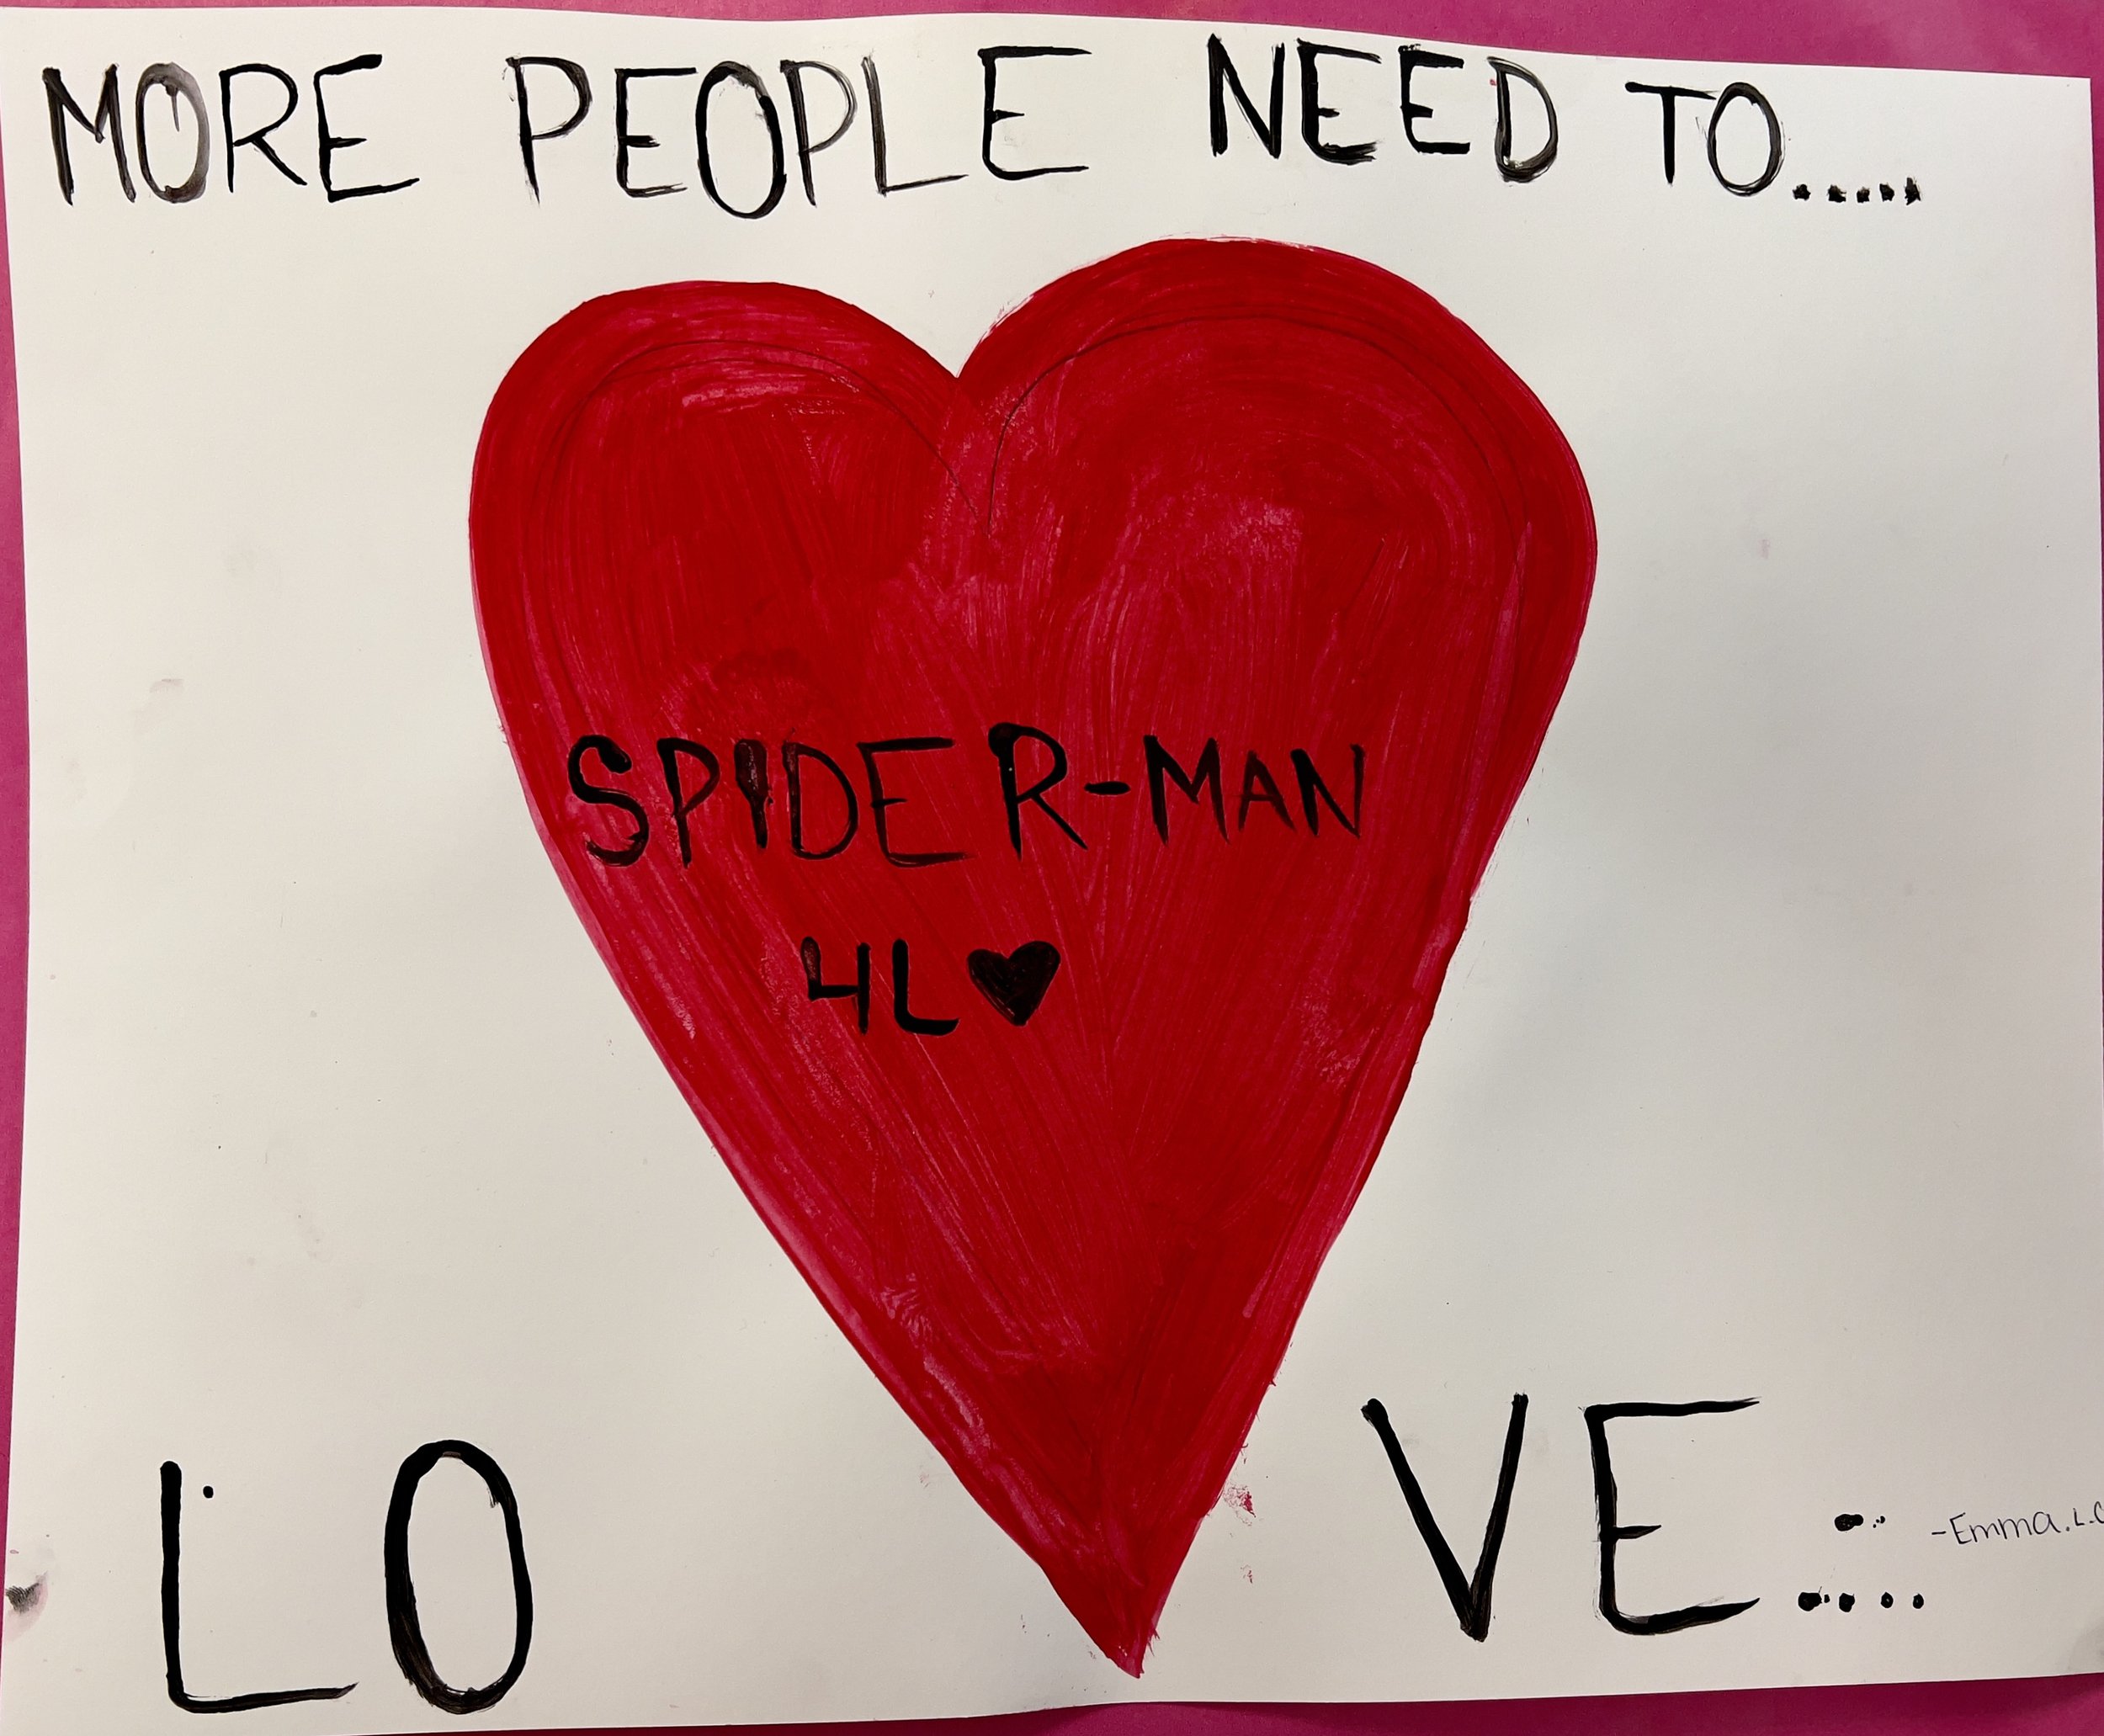 MORE PEOPLE NEED TO.....
SPIDER-MAN
4L♥
LO VE....
-Emma.L.C